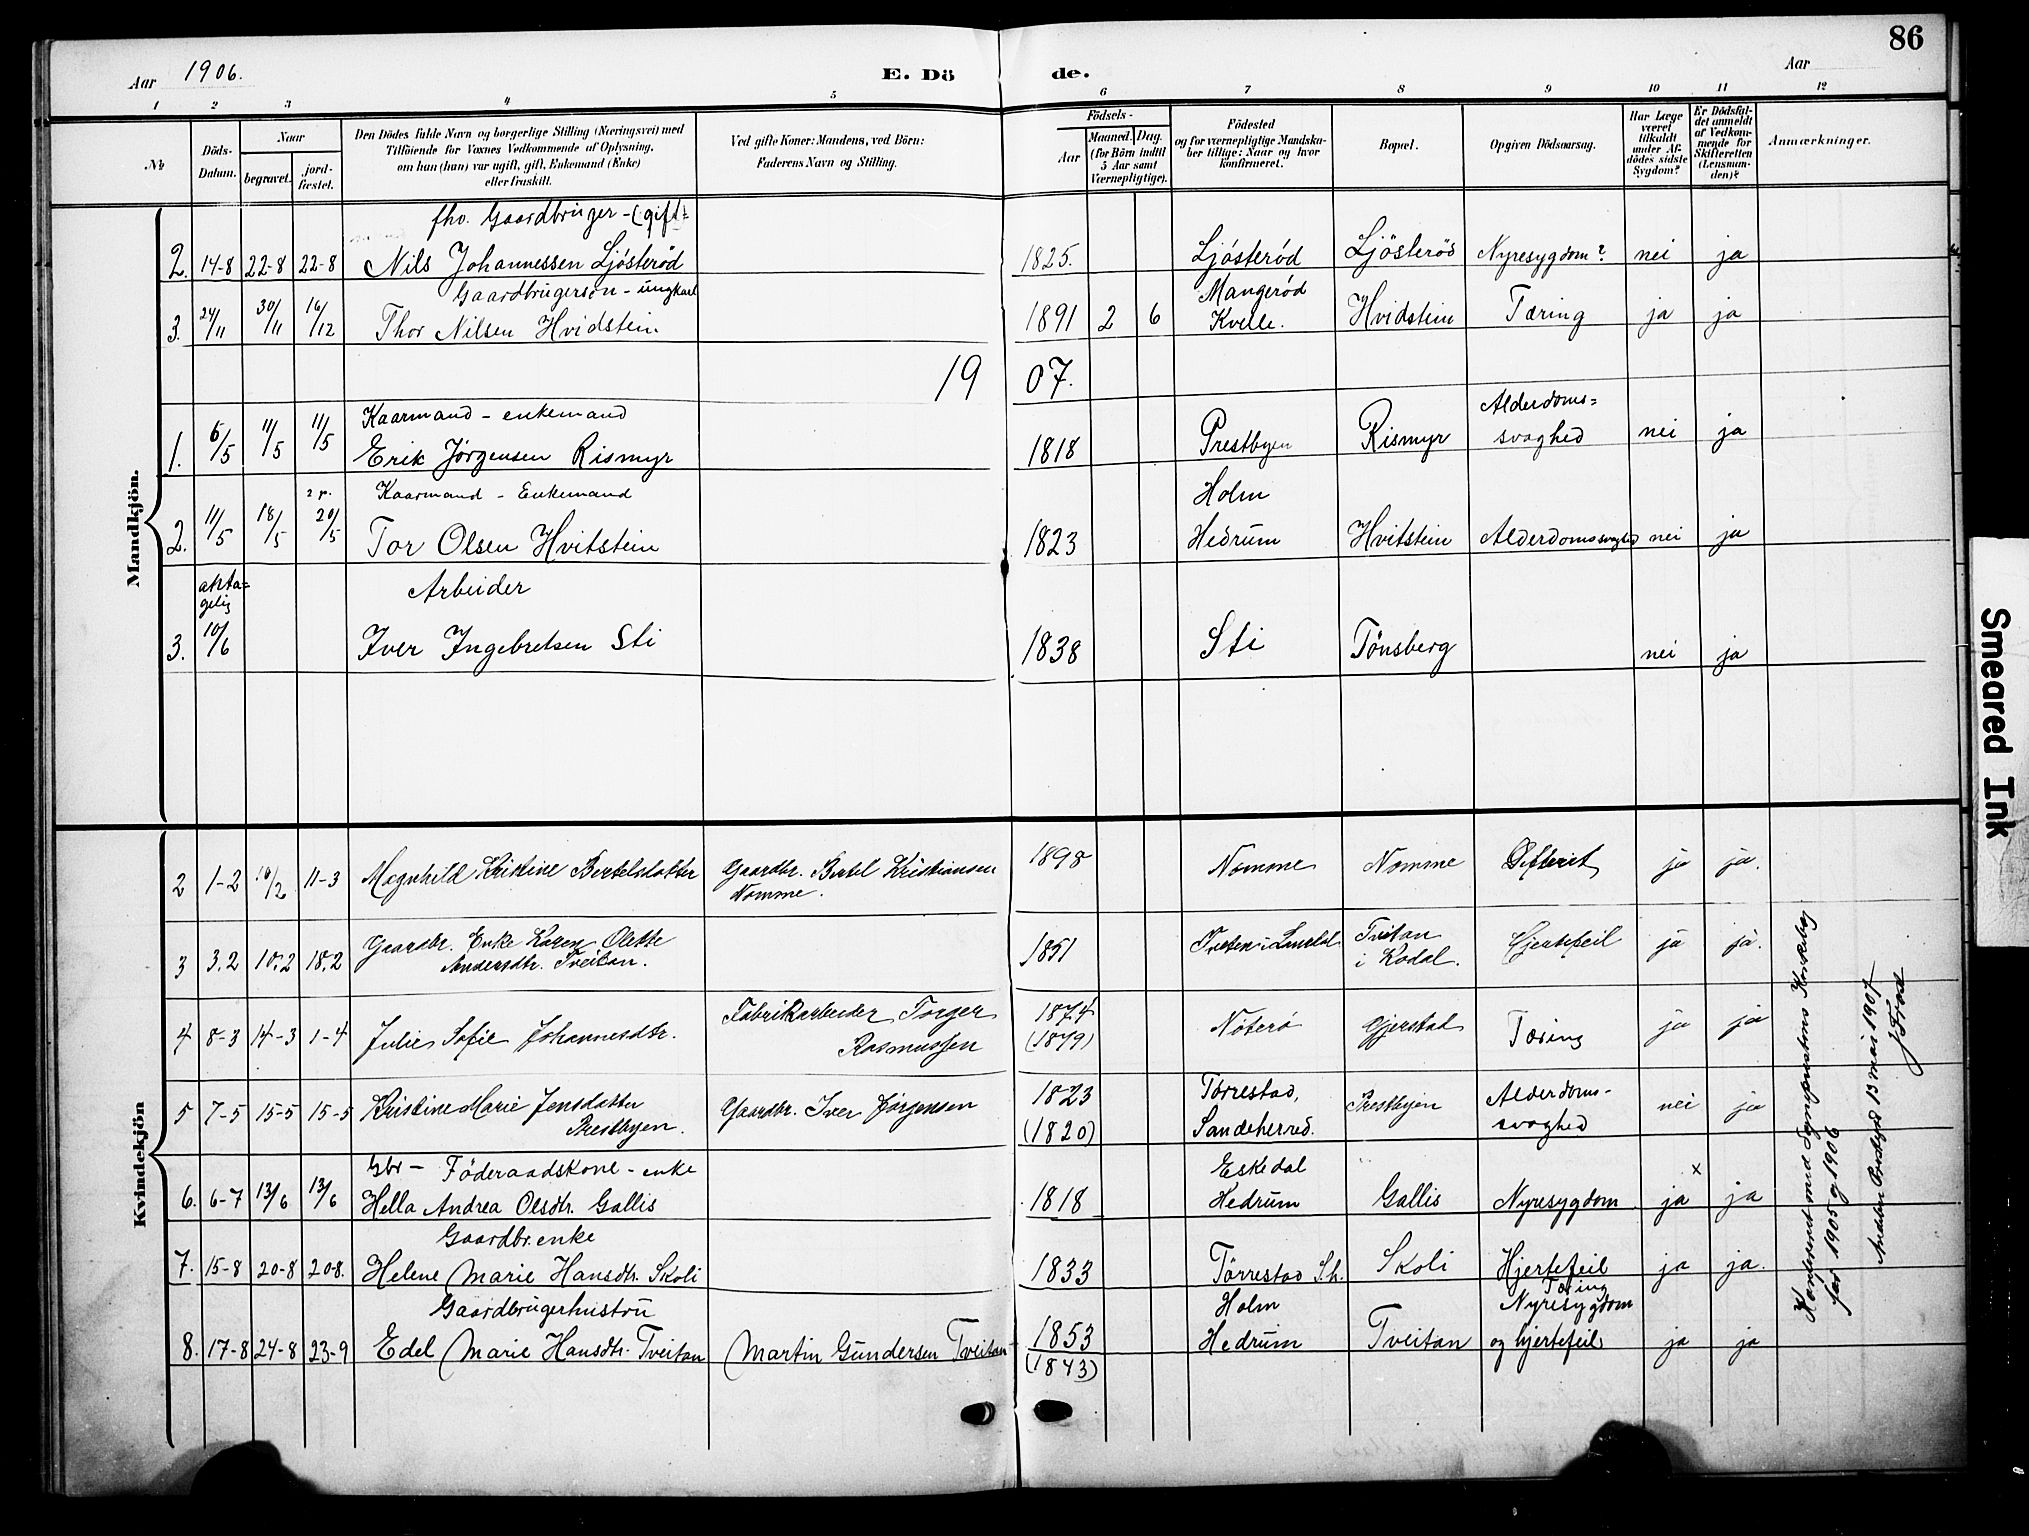 86
Aar 1906.
E. Dö de.
Aar
1 2 3 4 5 6 7 8 9 10 11 12
No
Döds-Datum.
Naar
begravet.
jord-fæstet.
Den Dödes fulde Navn og borgerlige Stilling (Næringsvei) med
Tilföiende for Voxnes Vedkommende af Oplysning,
om hun (han) var ugift, gift, Enkemand (Enke)
eller fraskilt.
Ved gifte Koner: Mandens, ved Börn:
Faderens Navn og Stilling.
Födsels-
Aar
Maaned. Dag.
(for Börn indtil
5 Aar samt
Værnepligtige).
Födested
og for værnepligtige Mandska-
ber tillige: Naar og hvor
konfirmeret.
Bopæl.
Opgiven Dödsaarsag.
Har Læge
været
tilkaldt
under Af-
dödes sidste
Sygdom?
Er Dödsfal-
det anmeldt
af Vedkom-
mende for
Skifteretten
(Lensman-
den)?
Anmærkninger.
Mandkjön.
fhv. Gaardbruger - (gift)
2. 14-8 22-8 22-8 Nils Johannessen Ljösteröd 1825. Ljösteröd Ljösteröd Nyresygdom? nei ja
Gaardbrugersön - ungkarl
3. 24/11 30/11 16/12 Thor Nilsen Hvidstein 1891 2 6 Mangeröd Kvelle. Hvidstein Tæring ja ja
1907.
Kaarmand - enkemand
1. 5/5 11/5 11/5 Erik Jörgensen Rismyr 1818 Prestbyen Rismyr Alderdoms=svaghed nei ja
Kaarmand - Enkemand
2. 11/5 18/5 2 p. 20/5 Tor Olsen Hvitstein 1823 Holm Hedrum Hvitstein Alderdomssvaghed nei ja
Arbeider
3. 10/6 Iver Ingebretsen Sti 1838 Sti Tönsberg nei ja
Kvindekjön
2 1-2 10/2 11-3 Magnhild Kristine Bertelsdatter Gaardbr. Bertel Kristiansen Nomme. 1898 Nomme Nomme Difterit ja ja.
3 3.2 10.2 18.2 Gaardbr. Enke Karen Olette Andersdtr. Tveitan. 1851 Tveitan i Kodal. Hjertefeil ja ja.
4 8-3 14-3 1-4 Julie Sofie Johannesdtr. Fabrikarbeider Torger Rasmussen 1874 (1879) Nöterö Gjerstad Tæring ja ja
5 7-5 15-5 15-5 Kristine Marie Jensdatter Prestbyen. Gaardbr. Iver Jörgensen 1823 (1820) Torrestad, Sandeherred. Prestbyen Alderdoms-svaghed nei ja
Gbr - Föderaadskone - enke
6. 6-7 13/6 13/6 Hella Andrea Olsdtr. Gallis 1818 Eskedal Hedrum Gallis Nyresygdom ja x ja
Gaardbr. enke
7. 15-8 20-8 20-8. Helene Marie Hansdtr. Skoli 1833 Törrestad Sh. Skoli Hjertefeil ja ja.
Gaardbrugerhustru
8. 17-8 24-8 23-9 Edel Marie Hansdtr. Tveitan Martin Gundersen Tveitan 1853 (1843) Holm Hedrum Tveitan Tæring Nyresygdom og hjertefeil ja ja
Konfereret med Sogneprestens Kirkebog
for 1905 og 1906
Andebu Prestegd 13 mai 1907
Smeared Ink